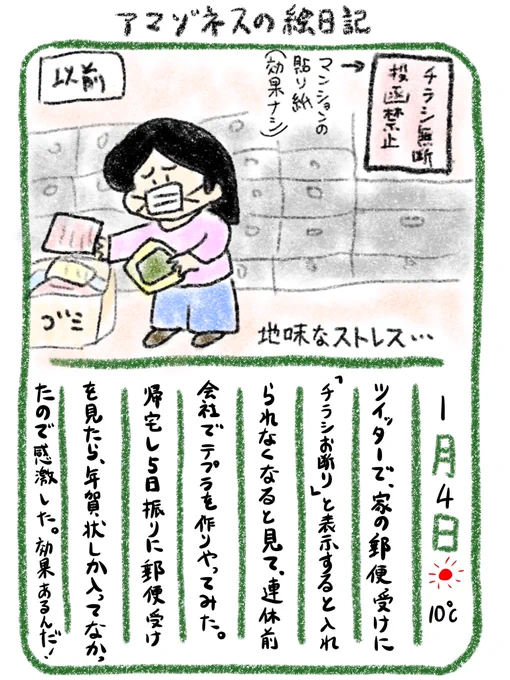 アマゾネスの絵日記
以前
チラシ無断
投函禁止
マンションの
貼り紙
(効果ナシ)
ゴミ
地味なストレス…
1月4日
10℃
ツイッターで、家の郵便受けに
「チラシお断り」と表示すると入れ
られなくなると見て、連休前
会社でテプラを作りやってみた。
帰宅し5日振りに郵便受け
を見たら、年賀状しか入ってなかっ
たので感激した。効果あるんだ!